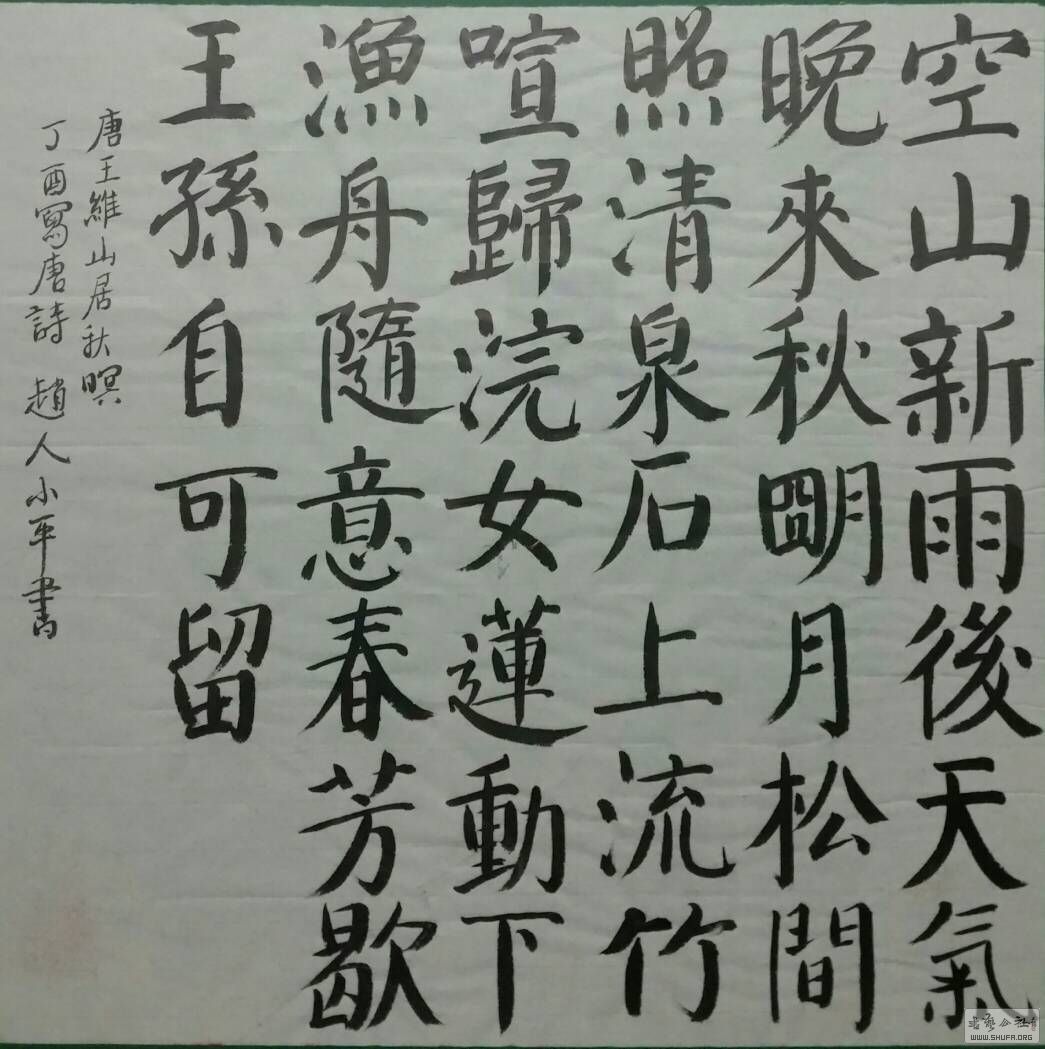 空山新雨後天氣
晚來秋明月松間
照清泉石上流竹
喧歸浣女蓮動下
漁舟隨意春芳歇
王孫自可留
唐王維山居秋暝
丁酉寫唐詩 趙人小平書
WWW.SHUFA.ORG